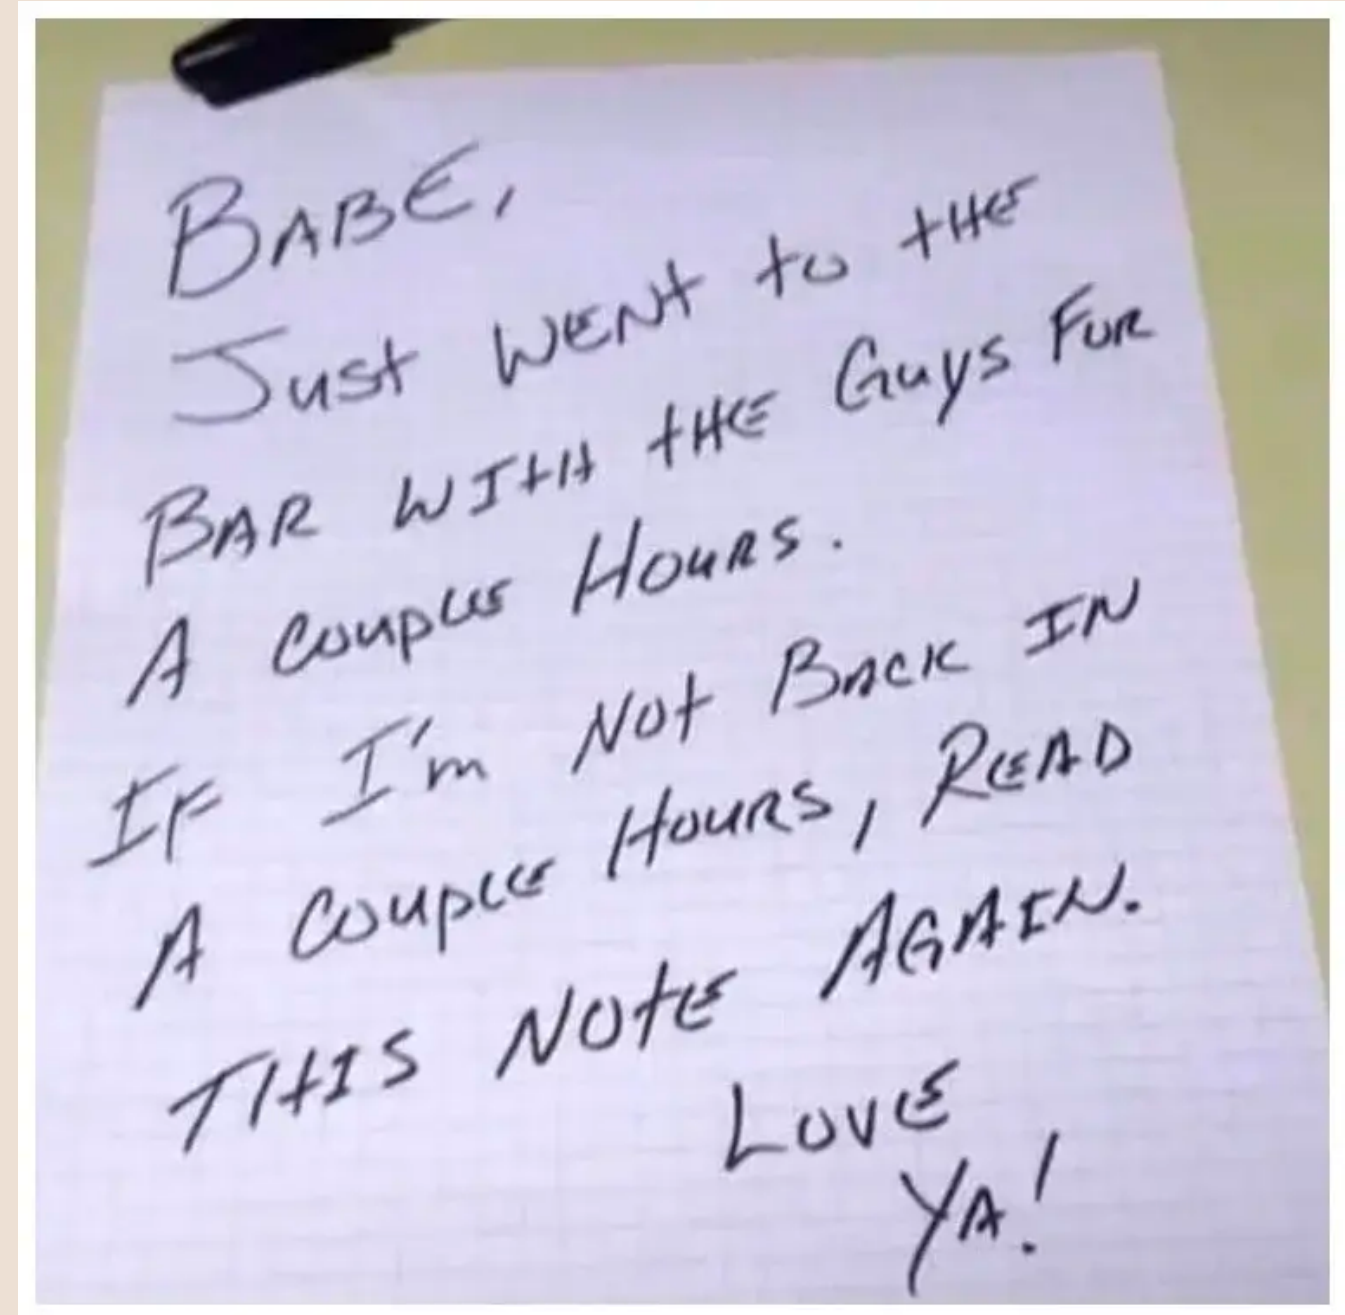 BABE,
JUST WENT TO THE
BAR WITH THE GUYS FOR
A COUPLE HOURS.
IF I'm NOT BACK IN
A COUPLE HOURS, READ
THIS NOTE AGAIN.
LOVE
YA!